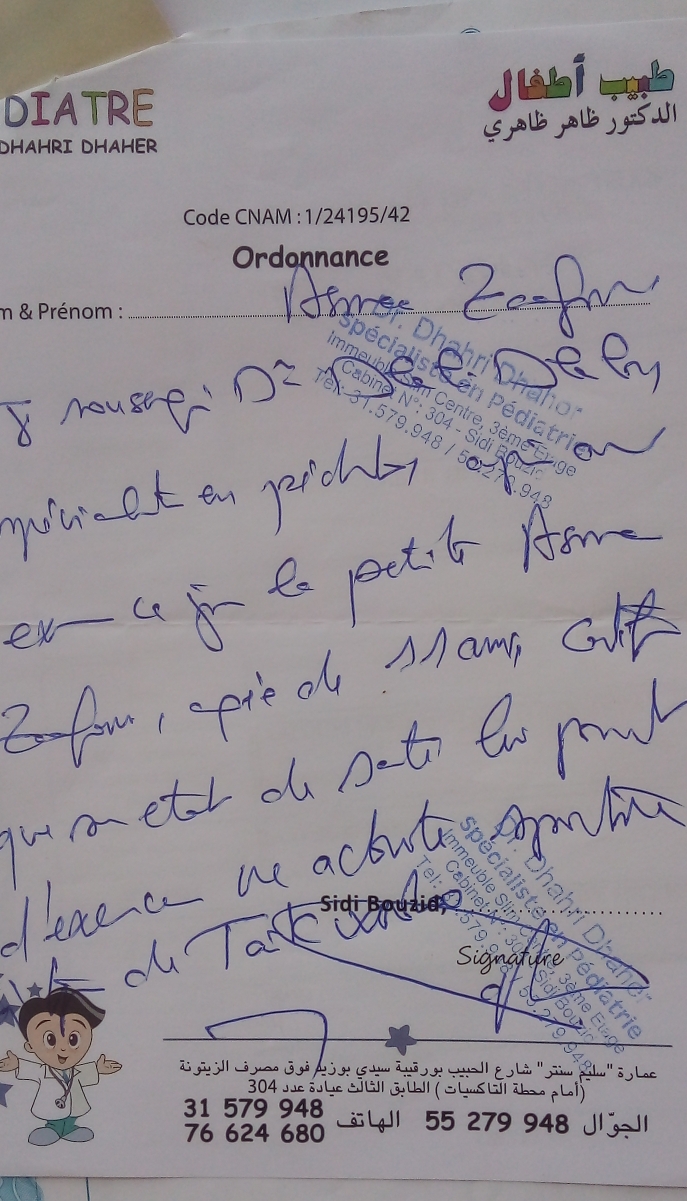 DIATRE
DHAHRI DHAHER
طبيب أطفال
الدكتور ظاهر ظاهري
Code CNAM : 1/24195/42
Ordonnance
m & Prénom : Asma
Dr. Dhahri Dhaher
spécialiste en Pédiatrie
Immeuble Slim Centre, 3ème Etage
Cabinet N°: 304 - Sidi Bouzid
Tél: 31.579.948 / 55.279.948
soussigné Dr
spécialiste en pédiatrie
ce jour la petite Asma
âgée de 11 ans, certifie
que son état de santé lui permet
d'exercer une activité sportive
de
Sidi Bouzid,
Signature
Dr. Dhahri Dhaher
spécialiste en Pédiatrie
Immeuble Slim Centre, 3ème Etage
Cabinet N°: 304 - Sidi Bouzid
Tél: 31.579.948 / 55.279.948
عمارة "سليم سنتر" شارع الحبيب بورقيبة سيدي بوزيد فوق مصرف الزيتونة
(أمام محطة التاكسيات) الطابق الثالث عيادة عدد 304
الجوّال 55 279 948 الهاتف 31 579 948
76 624 680